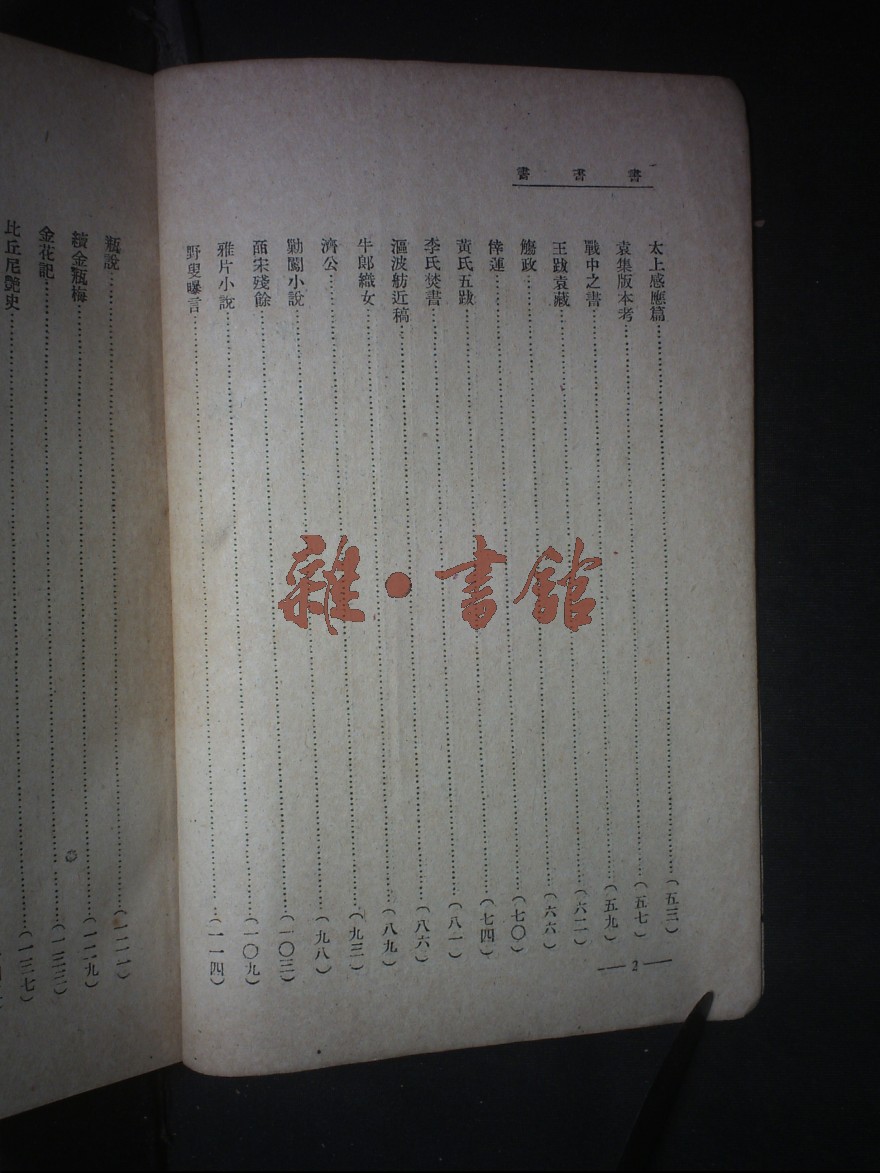 書書書
太上感應篇……(五三)
袁集版本考……(五七)
戰中之書……(五九)
王跋袁藏……(六二)
觴政……(六六)
倖蓮……(七〇)
黃氏五跋……(七四)
李氏焚書……(八一)
漚波舫近稿……(八六)
牛郎織女……(八九)
濟公……(九三)
勦闖小說……(九八)
南宋殘餘……(一〇三)
雅片小說……(一〇九)
野叟曝言……(一一四)
—2—
瓶說……(一二一)
續金瓶梅……(一二九)
金花記……(一三三)
比丘尼艷史……(一三七)
雜·書館